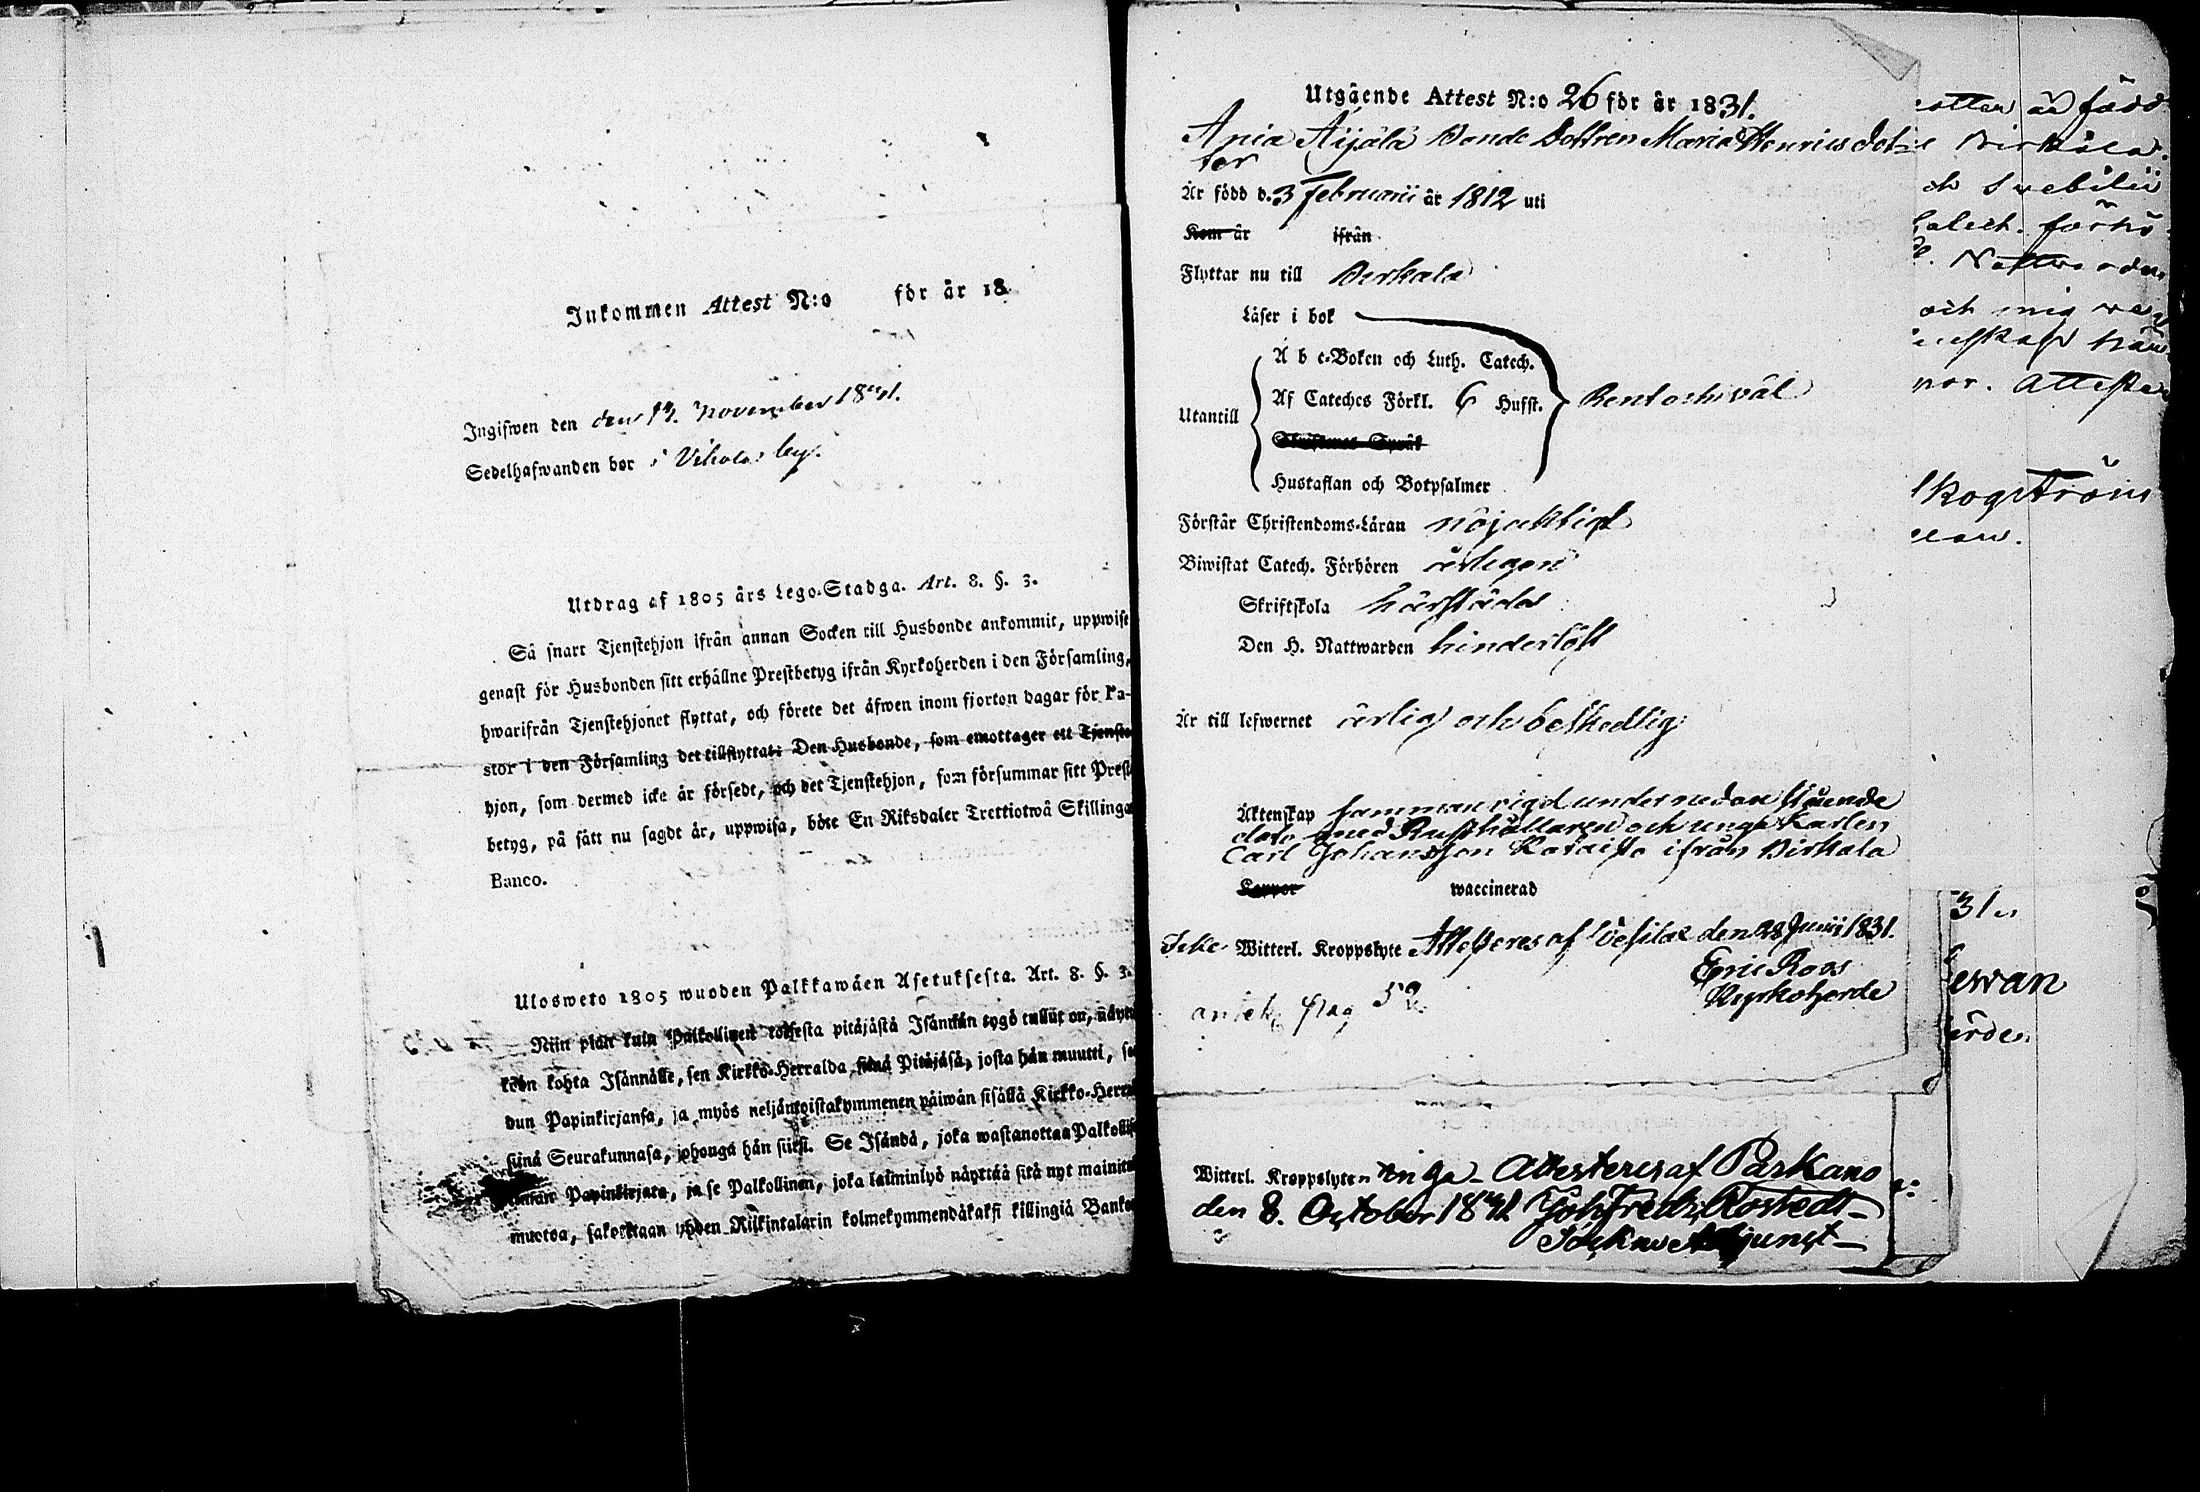 Inkommen Attest N:o för år 18
Ingifwen den den 13. november 1831.
Sedelhafwanden bor i by.
Utdrag af 1805 års Lego-Stadga. Art. 8. §. 3.
Så snart Tjenstehjon ifrån annan Socken till Husbonde ankommit, uppwise
genast för Husbonden sitt erhållne Prestbetyg ifrån Kyrkoherden i den Församling,
hwarifrån Tjenstehjonet flyttat, och förete det äfwen inom fjorton dagar för Pa-
stor i den Församling det tillflyttat: Den Husbonde, som emottager ett Tjenste
hjon, som dermed icke är försedt, och det Tjenstehjon, som försummar sitt Prest
betyg, på sätt nu sagdt är, uppwisa, böte En Riksdaler Trettiotwå Skillingar
Banco.
Ulosweto 1805 wuoden Palkkawäen Asetuksesta. Art. 8. §. 3.
Niin pian kuin Palkollinen toisesta pitäjästä Isännän tygö tullut on, näyttä
köön kohta Isännälle, sen Kirkko-Herralda siinä Pitäjäsä, josta hän muutti, sa
dun Papinkirjansa, ja myös neljäntoistakymmenen päiwän sisällä Kirkko-Herra
siinä Seurakunnasa, johonga hän siirsi. Se Isändä, joka wastanottaa Palkollis
Papinkirjata, ja se Palkollinen, joka laiminlyö näyttää sitä nyt mainitu
muotoa, sakotetaan yhden Riikintalarin kolmekymmendäkaksi killingiä Banko
Utgående Attest N:o 26 för år 1831.
Ania Äijälä Bonde Dottren Maria Henricsdot
ter
Är född d. 3 Februarii år 1812 uti
Kom år ifrån
Flyttar nu till Birkala
Läser i bok
A b c-Boken och Luth. Catech.
Utantill Af Cateches Förkl. 6 Hufst. Rent och väl
Skriftenes Språk
Hustaflan och Botpsalmer
Förstår Christendoms-Läran nöjaktigt
Biwistat Catech. Förhören årligen
Skriftskola härstädes
Den H. Nattwarden hinderlöst
Är till lefwernet ärlig och beskedlig
Äktenskap samman vigd under nedan stående
dato med Rusthållaren och unga Karlen
Carl Johansson Kataisto ifrån Birkala
Koppor waccinerad
Icke Witterl. Kroppslyte Attesteras af Vesilax den 28 Junii 1831.
Eric Roos
Kyrkoherde
52
Witterl. Kroppslyten inga Attesteras af Parkano
den 8. October 1831 Joh Fredr. Rostedt
Adjunct
är född
Birkala
och Swebilii
förhö
Nattwarden
och mig
31.